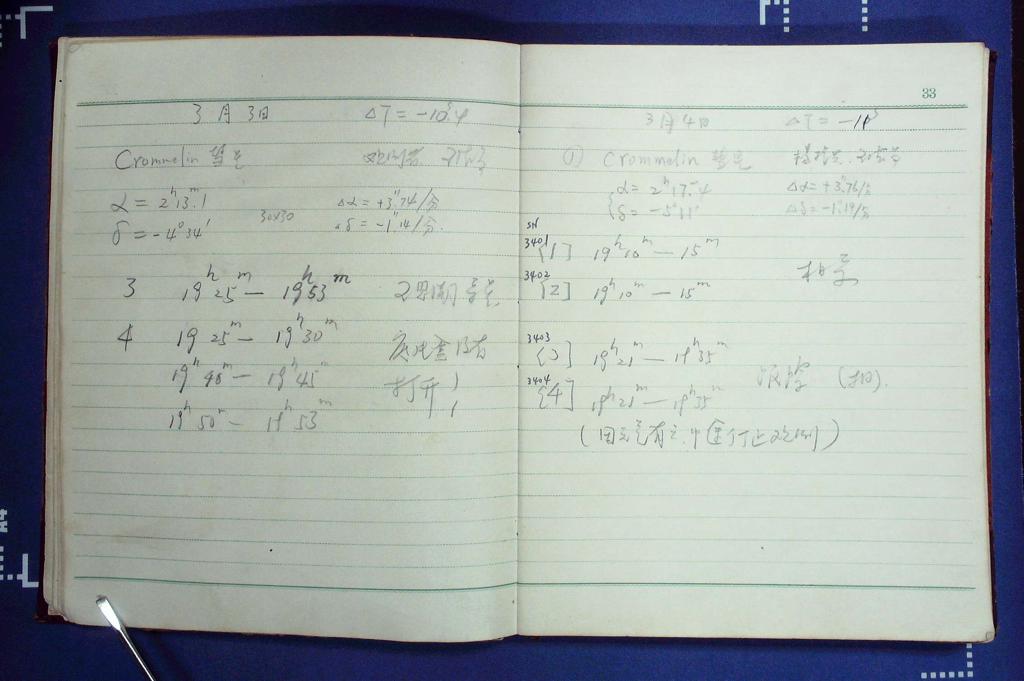 3月3日 ΔT = -10ˢ.4
Crommelin 彗星 观测者
α = 2ʰ13ᵐ.1 Δα = +3".74/分
δ = -4°34' 30x30 Δδ = -1".14/分
3 19ʰ25ᵐ — 19ʰ53ᵐ
4 19ʰ25ᵐ — 19ʰ30ᵐ 底片盒没有
19ʰ40ᵐ — 19ʰ45ᵐ 打开!
19ʰ50ᵐ — 19ʰ53ᵐ
33
3月4日 ΔT = -11ˢ
① Crommelin 彗星
α = 2ʰ17ᵐ.4 Δα = +3".76/分
δ = -5°11' Δδ = -1".19/分
SN
3401 [1] 19ʰ10ᵐ — 15ᵐ
3402 [2] 19ʰ10ᵐ — 15ᵐ
3403 [3] 19ʰ21ᵐ — 19ʰ35ᵐ
3404 [4] 19ʰ21ᵐ — 19ʰ35ᵐ
(因天气有云,中途停止观测)